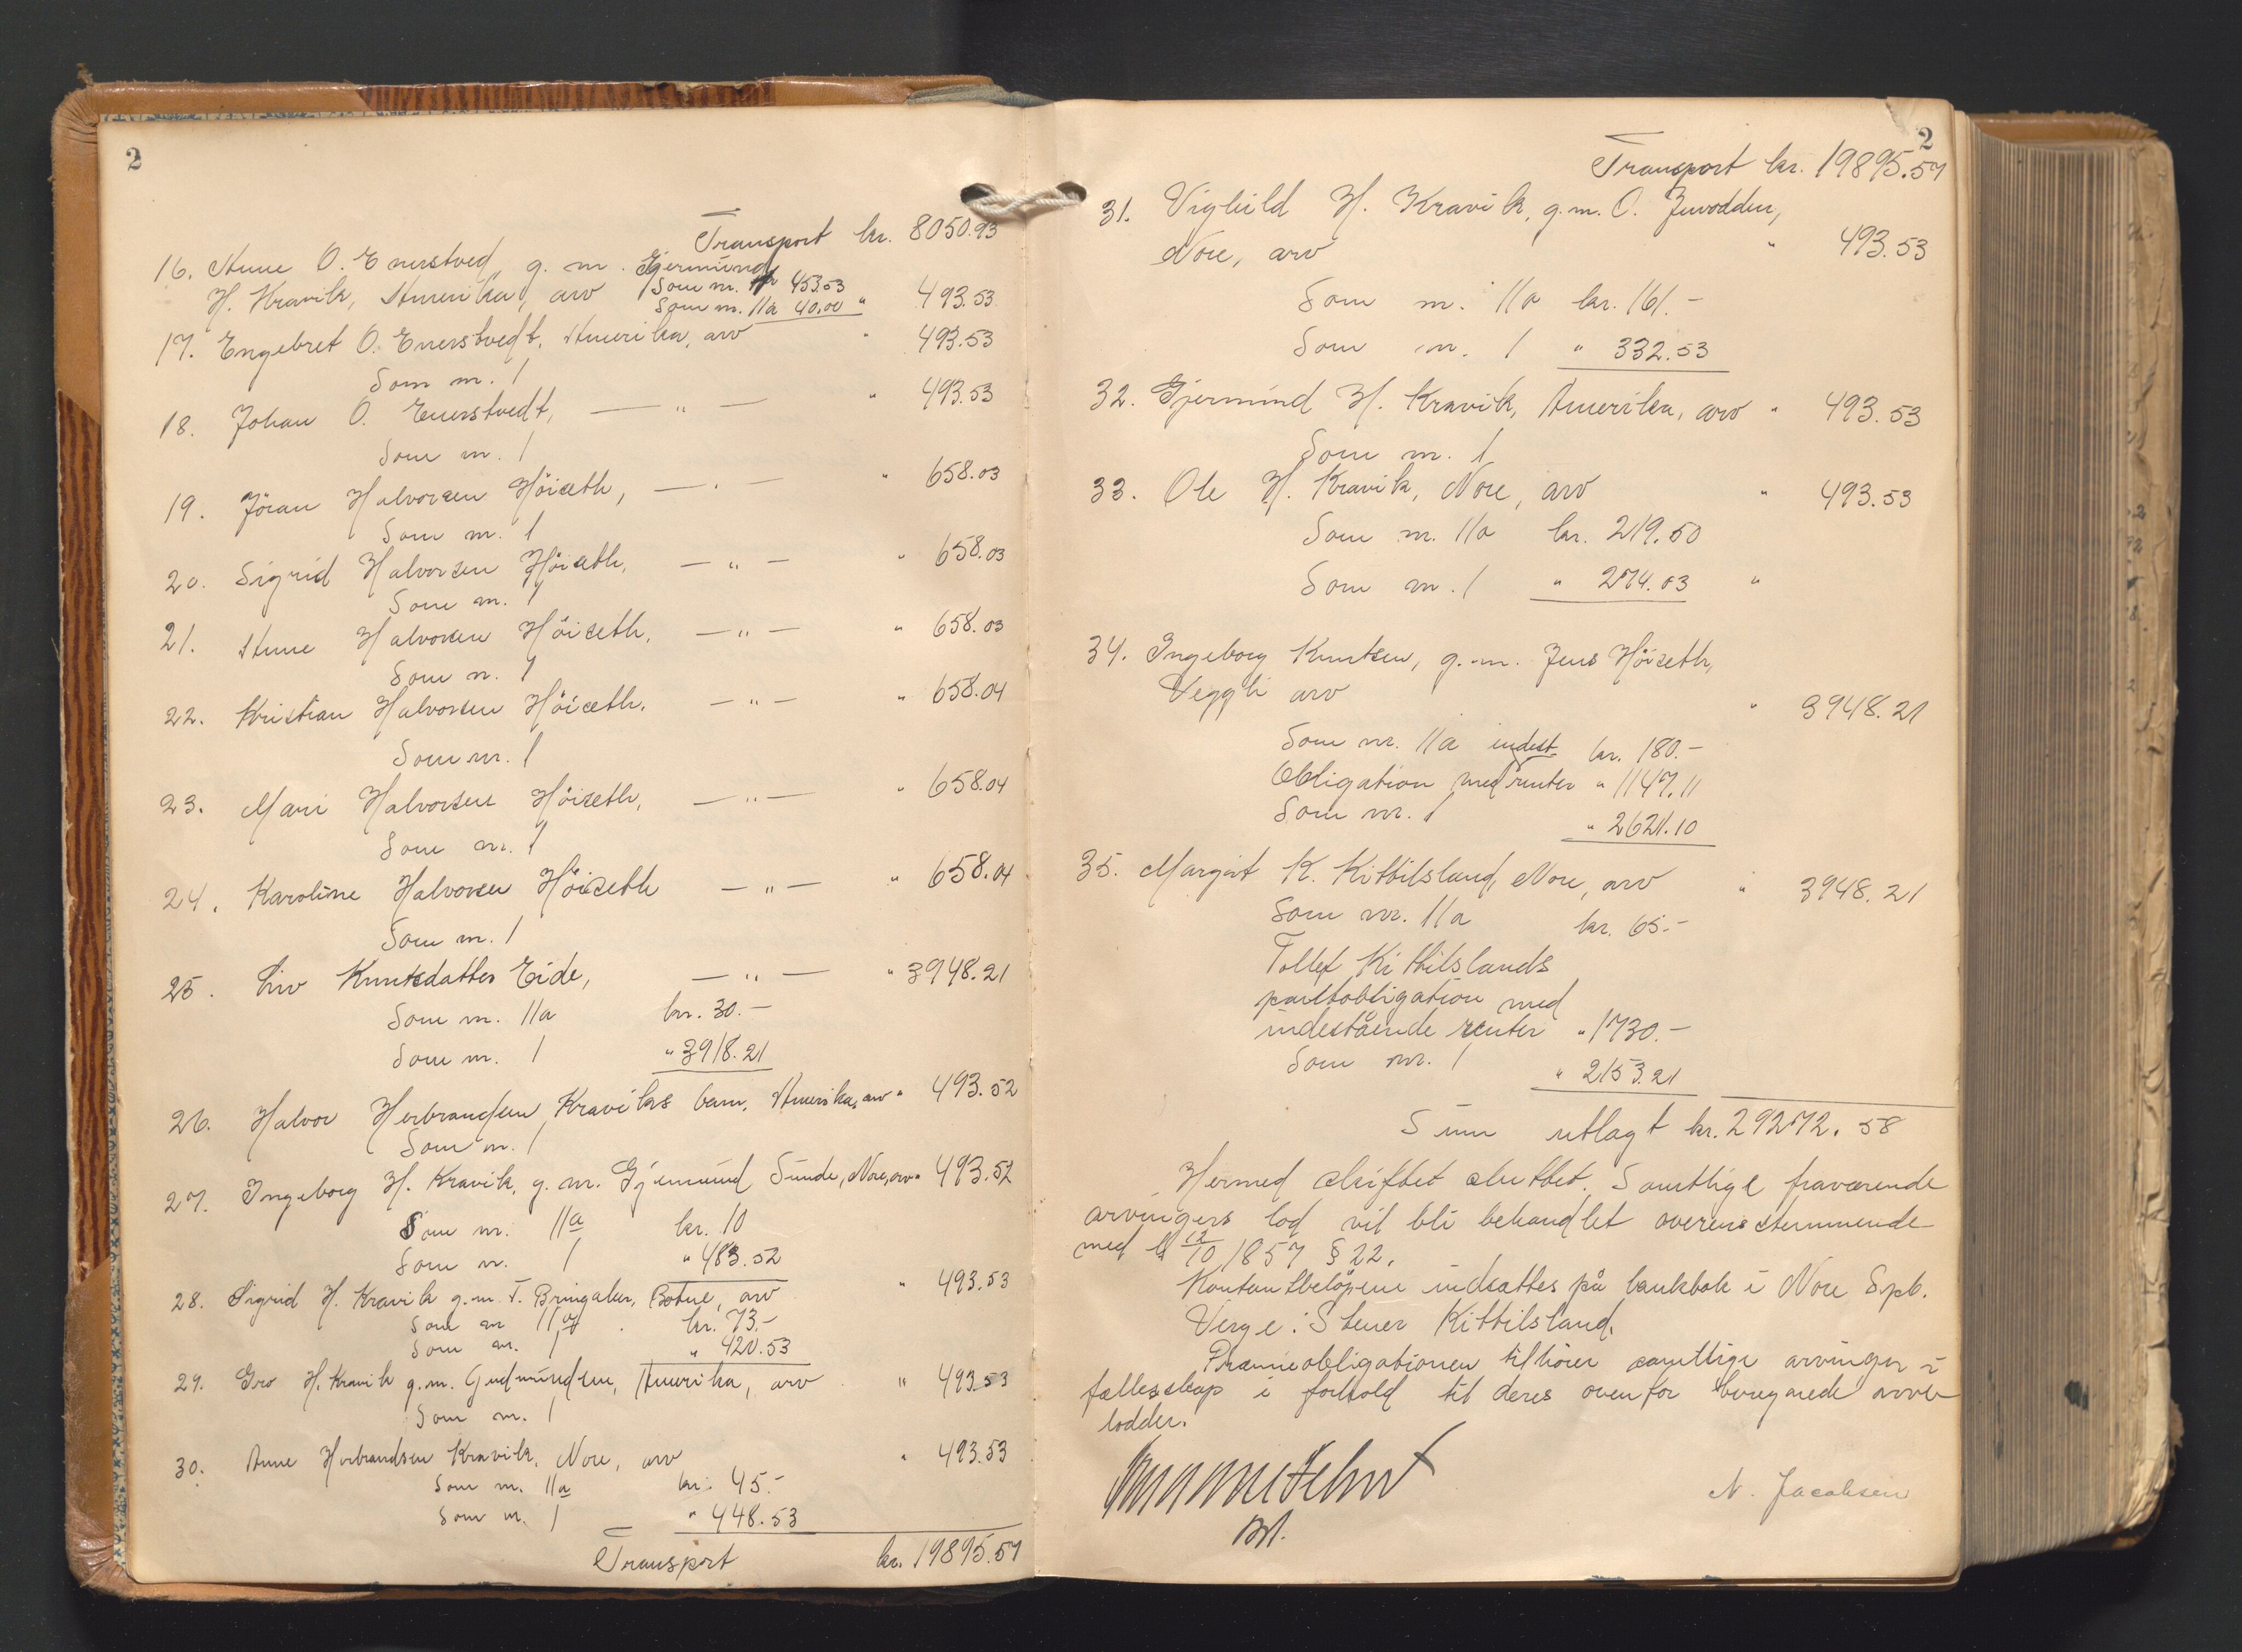 2
Transport kr. 8050.93
16. Anne O. Enerstved, g. m. Gjermund
H. Kravik, Amerika, arv Som nr. 1 453.53 493.53
Som nr. 11a 40.00 "
17. Engebret O. Enerstvedt, Amerika, arv " 493.53
Som nr. 1
18. Johan O. Enerstvedt, — " — " 493.53
Som nr. 1
19. Jöran Halvorsen Höiseth, — " — " 658.03
Som nr. 1
20. Sigrid Halvorsen Höiseth, — " — " 658.03
Som nr. 1
21. Anne Halvorsen Höiseth, — " — " 658.03
Som nr. 1
22. Kristian Halvorsen Höiseth, — " — " 658.04
Som nr. 1
23. Mari Halvorsen Höiseth, — " — " 658.04
Som nr. 1
24. Karoline Halvorsen Höiseth — " — " 658.04
Som nr. 1
25. Liv Knutsdatter Eide, — " — " 3948.21
Som nr. 11a kr. 30.-
Som nr. 1 " 3918.21
26. Halvor Herbrandsen Kraviks barn, Amerika, arv " 493.52
Som nr. 1
27. Ingeborg H. Kravik, g. m. Gjermund Sunde, Nore, arv " 493.52
Som nr. 11a kr. 10
Som nr. 1 " 483.52
28. Sigrid H. Kravik g. m. T. Bringaker, Botne, arv " 493.53
Som nr 11a kr. 73.-
Som nr. 1 " 420.53
29. Gro H. Kravik g. m. Gudmundsen, Amerika, arv " 493.53
Som nr. 1
30. Anne Herbrandsen Kravik, Nore, arv " 493.53
Som nr. 11a kr. 45.-
Som nr. 1 " 448.53
Transport kr. 19895.57
2
Transport kr. 19895.57
31. Vighild H. Kravik, g. m. O. Juvodden,
Nore, arv " 493.53
Som nr. 11a kr. 161.-
Som nr. 1 " 332.53
32. Gjermund H. Kravik, Amerika, arv " 493.53
Som nr. 1
33. Ole H. Kravik, Nore, arv " 493.53
Som nr. 11a kr. 219.50
Som nr. 1 " 274.03 "
34. Ingeborg Knutsen, g. m. Jens Höiseth,
Veggli arv " 3948.21
Som nr. 11a kr. 180.-
indest.
Obligation med renter " 1147.11
Som nr. 1 " 2621.10
35. Margit K. Kittilsland, Nore, arv " 3948.21
Som nr. 11a kr. 65.-
Tollef Kittilslands
pantobligation med
indestående renter " 1730.-
Som nr. 1 " 2153.21
Sum utlagt kr. 29272.58
Hermed skiftet sluttet. Samtlige fraværende
arvingers lod vil bli behandlet overensstemmende
med l. 12/10 1857 § 22.
Kontantbelöpene indsattes på bankbok i Nore Spb.
Verge: Stener Kittilsland.
Præmieobligationen tilhörer samtlige arvinger i
fællesskap i forhold til deres ovenfor beregnede arve
lodder.
N. Jacobsen